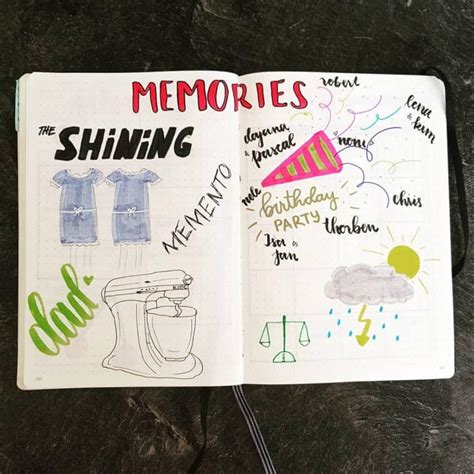 MEMORIES
THE SHiNiNG
MEMENTO
dad
robert
dayana
& Pascal
noni
lena
& kim
chris
birthday
PARTY
thorben
Isa
& Jan